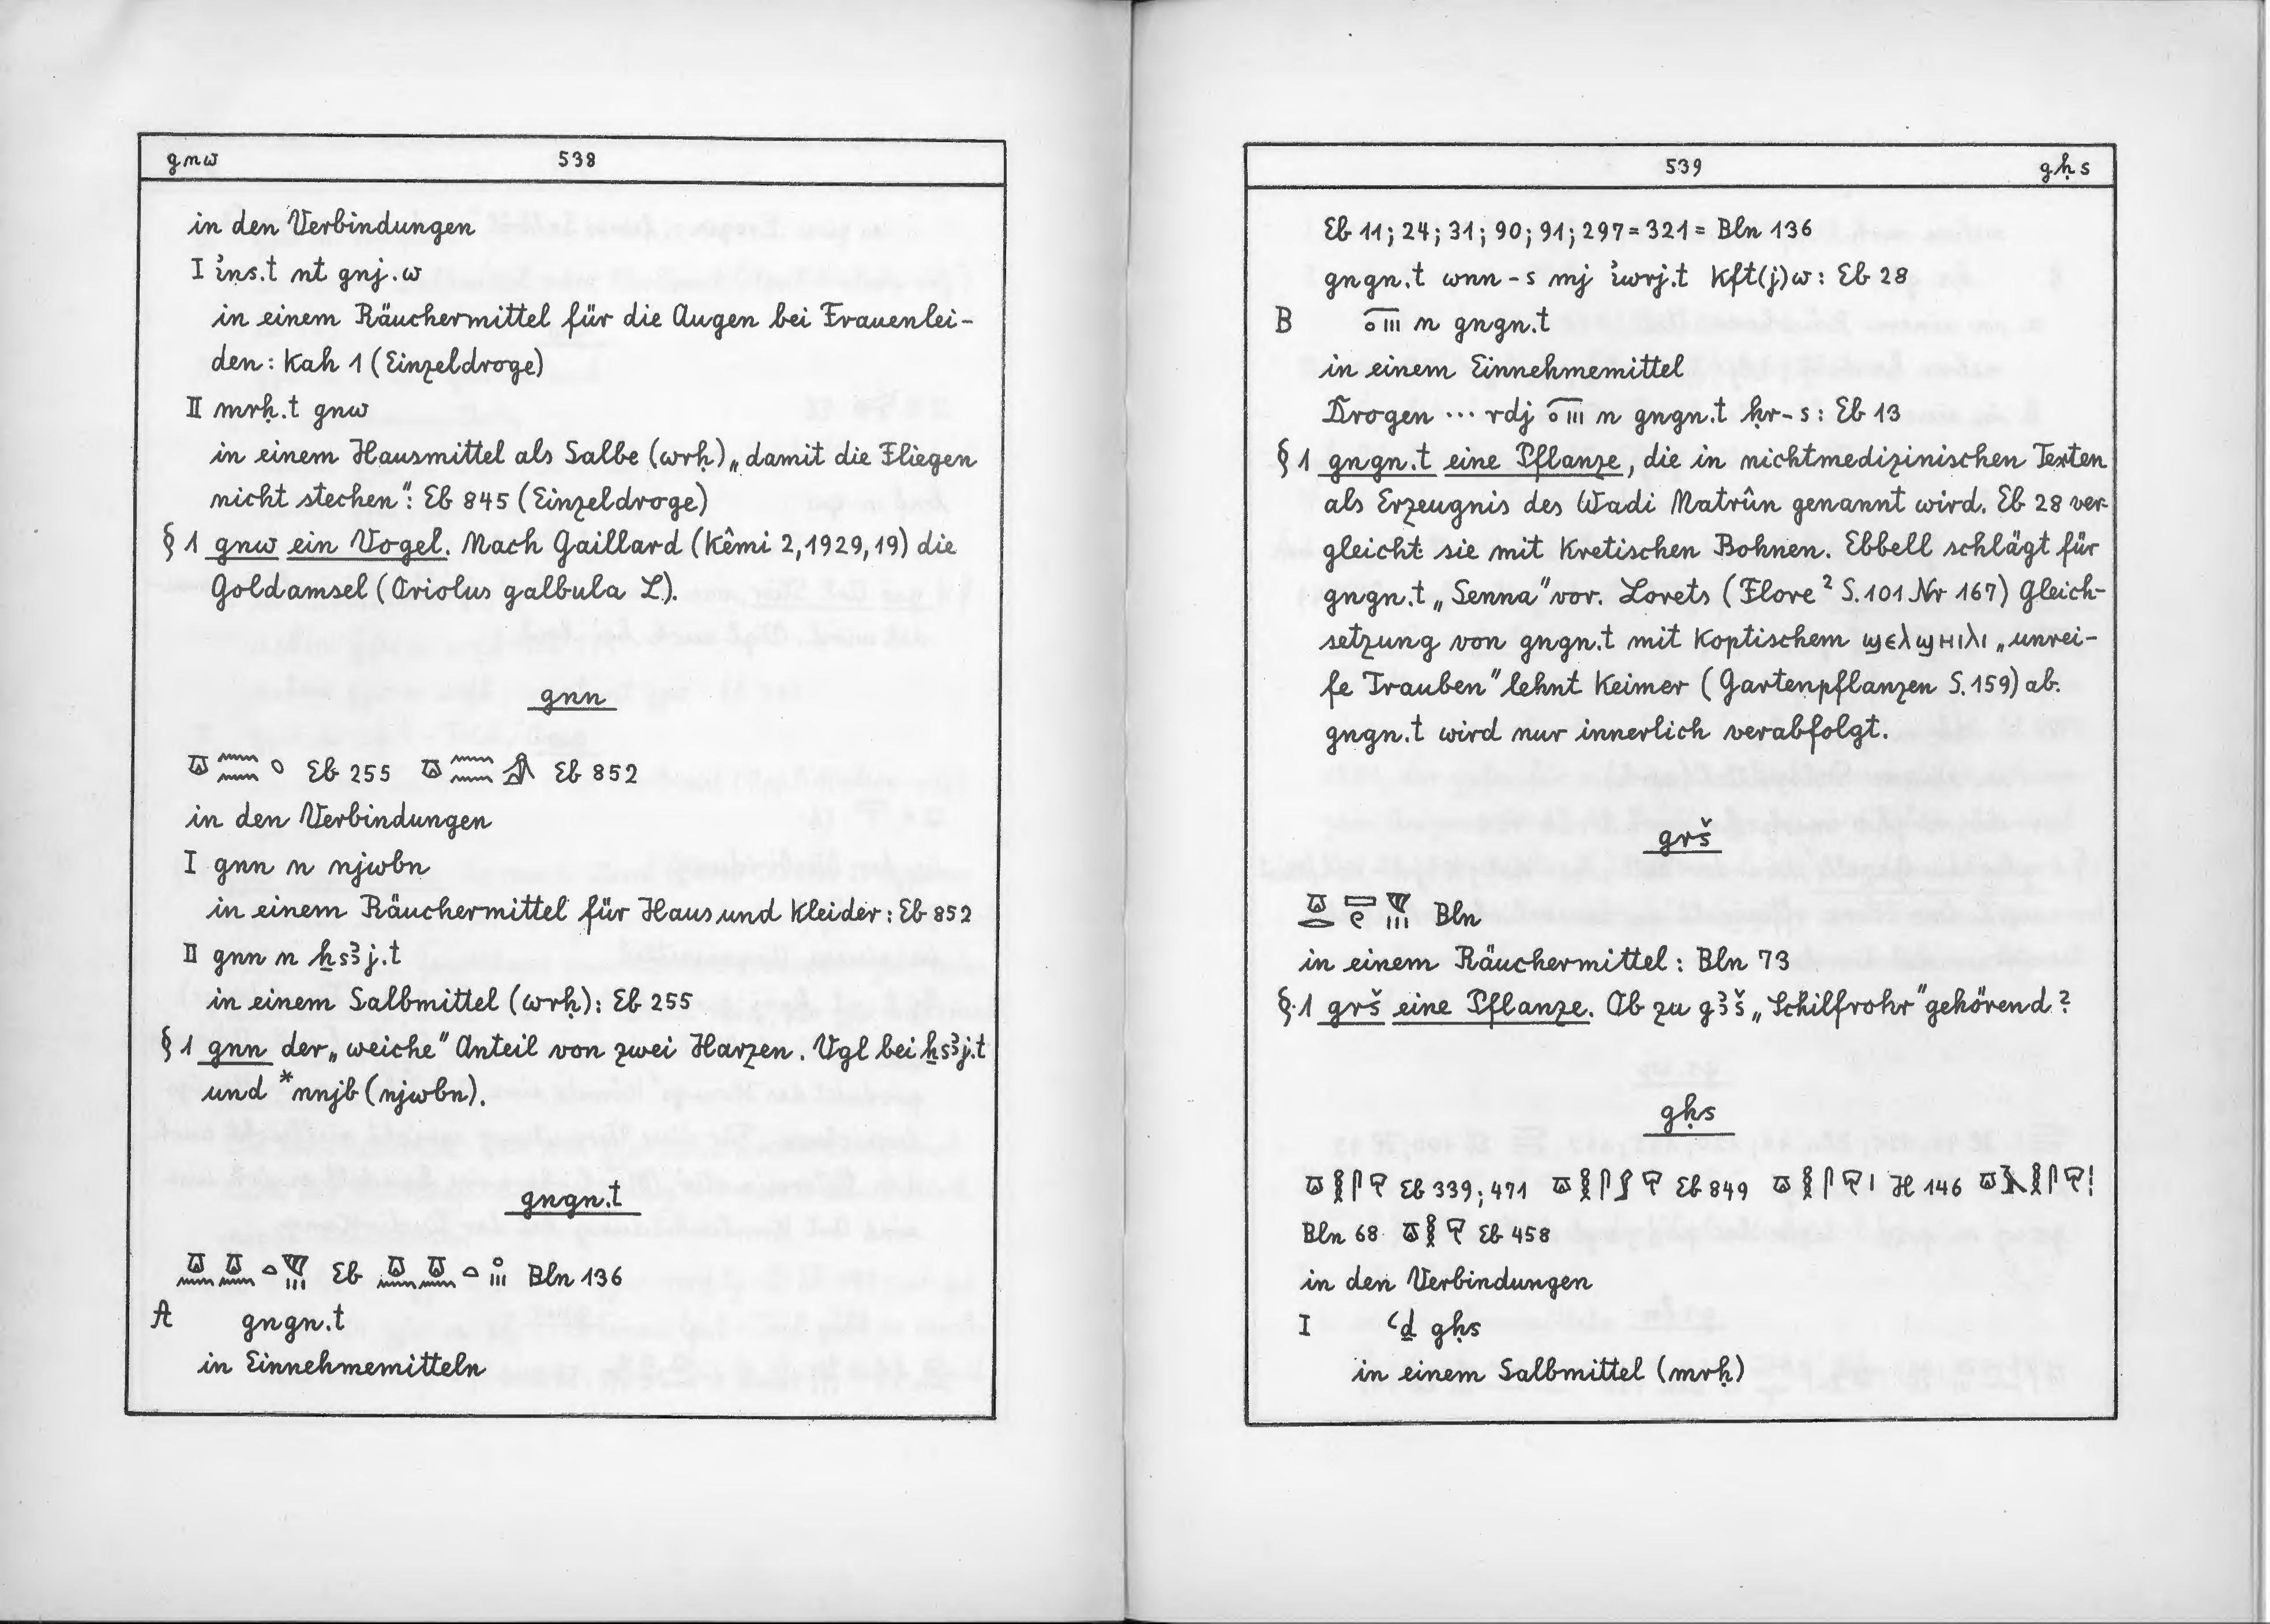 gnw 538
in den Verbindungen
I i҆ns.t nt gnj.w
in einem Räuchermittel für die Augen bei Frauenlei-
den: Kah 1 (Einzeldroge)
II mrḥ.t gnw
in einem Hausmittel als Salbe (wrḥ) „damit die Fliegen
nicht stechen“: Eb 845 (Einzeldroge)
§ 1 gnw ein Vogel. Nach Gaillard (Kêmi 2, 1929, 19) die
Goldamsel (Oriolus galbula L).
gnn
𓎼𓈖𓈖 Eb 255 𓎼𓈖𓈖 Eb 852
in den Verbindungen
I gnn n njwbn
in einem Räuchermittel für Haus und Kleider: Eb 852
II gnn n ẖsꜣj.t
in einem Salbmittel (wrḥ): Eb 255
§ 1 gnn der „weiche“ Anteil von zwei Harzen. Vgl bei ẖsꜣj.t
und *nnjb (njwbn).
gngn.t
𓎼𓈖𓎼𓈖𓏏𓆰𓏥 Eb 𓎼𓈖𓎼𓈖𓏏𓈒𓏥 Bln 136
A gngn.t
in Einnehmemitteln
539 gḥs
Eb 11; 24; 31; 90; 91; 297 = 321 = Bln 136
gngn.t wnn-s mj i҆wrj.t Kft(j)w: Eb 28
B n gngn.t
in einem Einnehmemittel
Drogen ... rdj n gngn.t ḥr-s: Eb 13
§ 1 gngn.t eine Pflanze, die in nichtmedizinischen Texten
als Erzeugnis des Wadi Natrûn genannt wird. Eb 28 ver-
gleicht sie mit Kretischen Bohnen. Ebbell schlägt für
gngn.t „Senna“ vor. Lorets (Flore² S. 101 Nr 167) Gleich-
setzung von gngn.t mit Koptischem ϣⲉⲗϣⲏⲓⲗⲓ „unrei-
fe Trauben“ lehnt Keimer (Gartenpflanzen S. 159) ab.
gngn.t wird nur innerlich verabfolgt.
grš
𓎼𓂋𓈙𓏲𓆰𓏥 Bln
in einem Räuchermittel: Bln 73
§ 1 grš eine Pflanze. Ob zu gꜣš „Schilfrohr“ gehörend?
gḥs
𓎼𓎛𓋴𓄛 Eb 339; 471 𓎼𓎛𓋴 𓄛 Eb 849 𓎼𓎛𓋴𓄛𓏤 H 146 𓎼𓎛𓋴𓄛
Bln 68 𓎼𓎛𓄛 Eb 458
in den Verbindungen
I ꜥḏ gḥs
in einem Salbmittel (mrḥ)